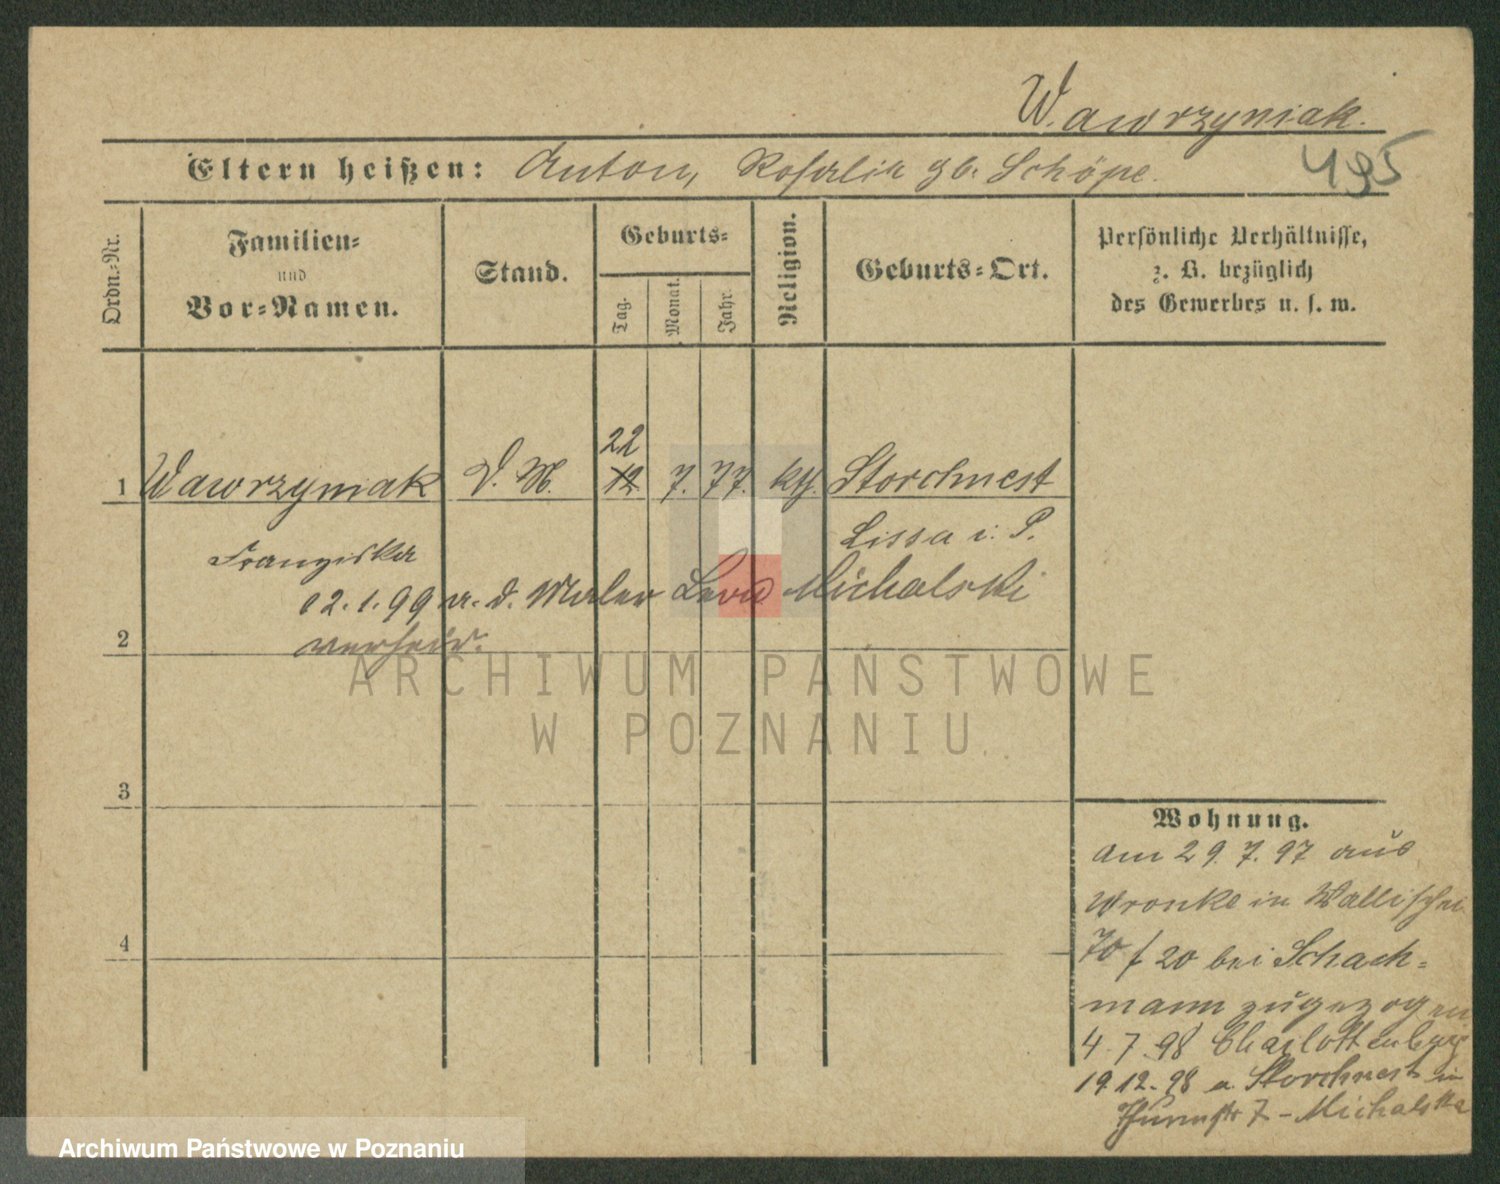 Wawrzyniak.
Eltern heißen: Anton, Rosalia gb. Schöpe.
495
Ordn.-Nr.
Familien-
und
Vor-Namen.
Stand.
Geburts-
Tag.
Monat.
Jahr.
Religion.
Geburts-Ort.
Persönliche Verhältnisse,
z. B. bezüglich
des Gewerbes u. s. w.
22
1 Wawrzyniak D. M. 12 7. 77. kth. Storchnest
Lissa i. P.
Franziska
02.1.99 a. d. Maler Leo Michalski
2 verheir.
ARCHIWUM PAŃSTWOWE
W POZNANIU
3
4
Wohnung.
Am 29.7.97 aus
Wronke in Wallischei
70 / 20 bei Schach-
mann zugezogen
4.7.98 Charlottenburg
19.12.98 a. Storchnest in
Thurmstr 7 - Michalska
Archiwum Państwowe w Poznaniu